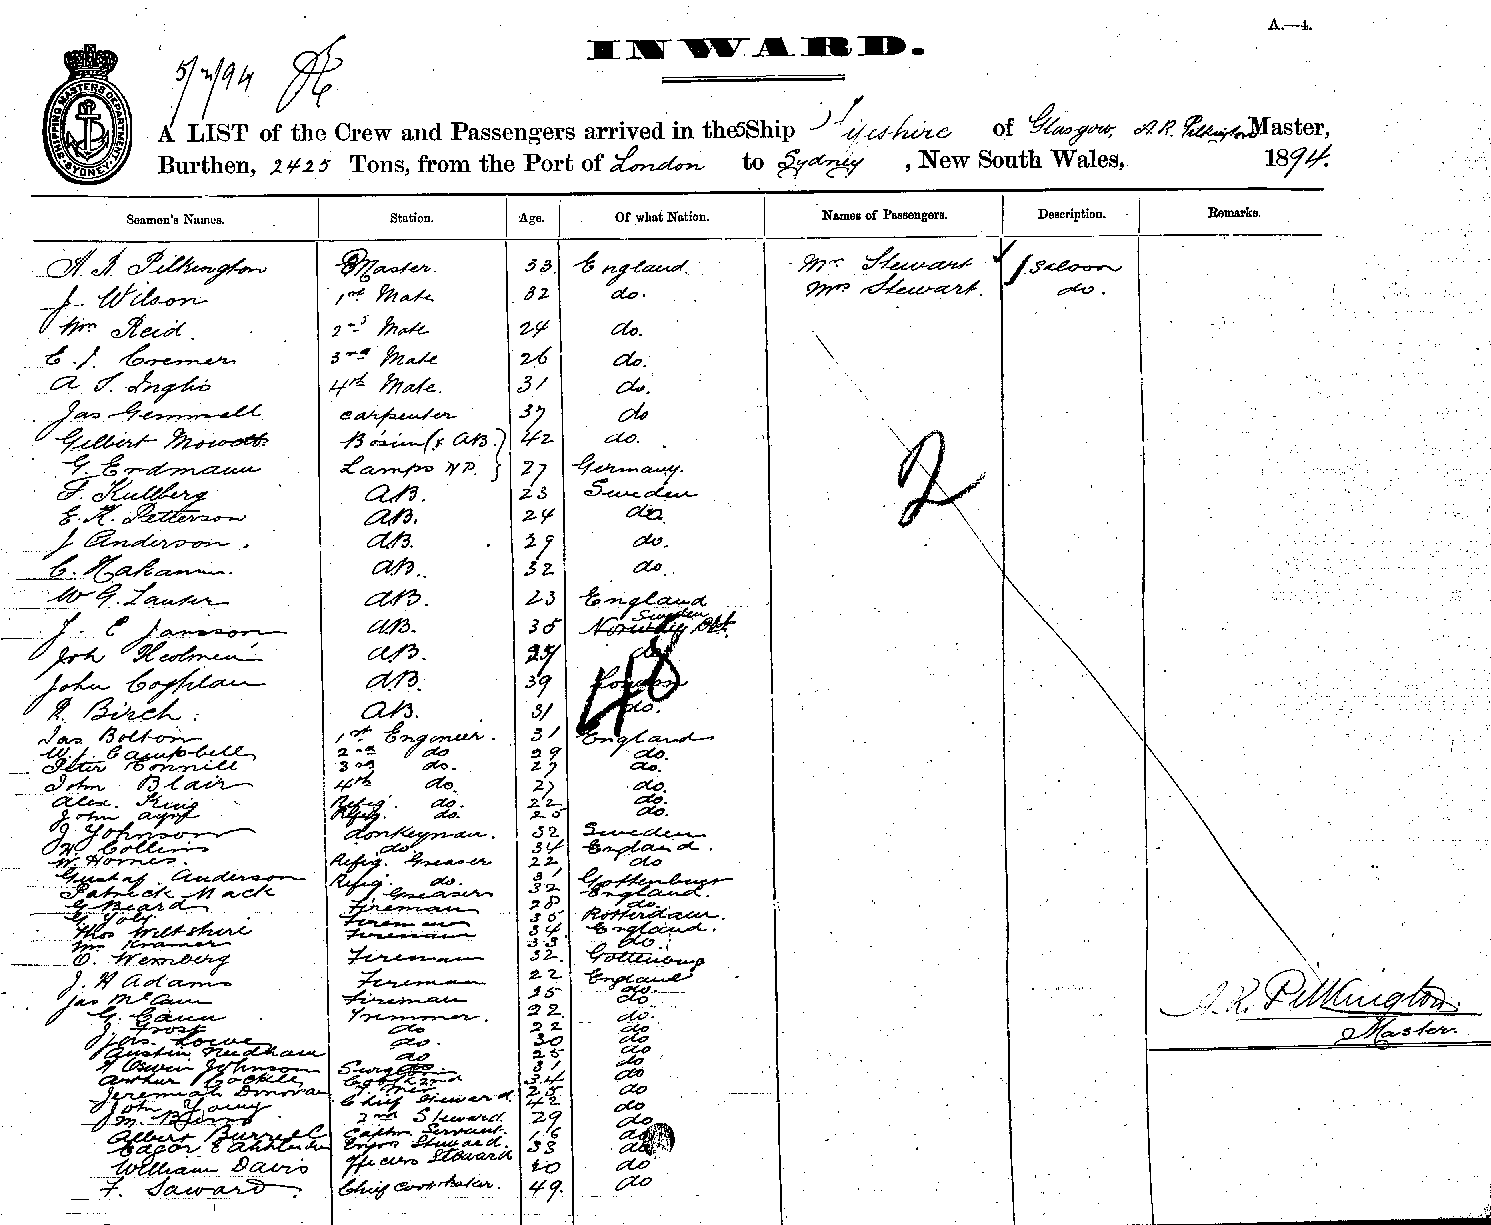 A.—4.
INWARD.
SHIPPING MASTERS DEPARTMENT SYDNEY
A LIST of the Crew and Passengers arrived in the SShip Fifeshire of Glasgow, A.R. Pilkington Master,
Burthen, 2425 Tons, from the Port of London to Sydney, New South Wales, 1894.
Seamen's Names. Station. Age. Of what Nation. Names of Passengers. Description. Remarks.
A. R. Pilkington Master. 33 England. Mr Stewart Saloon
J. Wilson 1st Mate 32 do. Mrs Stewart. do.
Wm Reid. 2nd Mate 24 do.
E. J. Cremer 3rd Mate 26 do.
A S. Inglis 4th Mate. 31 do.
Jas Gemmell carpenter 37 do
Gilbert Mowatt Bosun (& AB.) 42 do.
G. Erdmann Lamps 27 Germany.
F. Kullberg AB. 23 Sweden
E. K. Petterson AB. 24 do
J Anderson. AB. 29 do.
C. AB. 32 do.
W G. AB. 23 England
J. E Jansson AB. 35 Sweden
Joh AB. do
John Coghlan AB. 39 London
R. Birch. AB. 31 do.
Jas Bolton 1st Engineer. 31 England
W. Campbell 2nd do 29 do.
Peter 3rd do. 27 do.
John Blair 4th do. 27 do.
Alex. King Refrig. do. 22 do.
John Refrig. do. 25 do.
J Johnson donkeyman. 32 Sweden
Collins do 34 England.
W. Homes. Refrig. Greaser 22 do
Gustaf Anderson Refrig. do. 31 Gottenburg
Patrick Mack Greaser 32 England.
G Beard Fireman 28 do.
G Joly Fireman 35 Rotterdam.
Thos Wiltshire Fireman 34 England.
Wm Kramer 33 do.
O. Wemberg Fireman 32. Gottenburg
J. H Adams Fireman 22 England
Jas McCann Fireman 25 do
G. Cann Trimmer. 22 do.
J Frost do 22 do
Jas. Lowe do. 30 do
Austin Needham do 25 do
R Owen Johnson Surgeon 31 do
Arthur Cockle 34 do
Jeremiah Donovan 25 do
John Young Chief Steward 42 do
M. Burns 2nd Steward 29 do
Albert Burrell Captns Servant. 16 do
Edgar Engrs Steward. 33 do
William Davis Officers Steward do
F. Saward. Chief Cook & Baker. 49. do
2
48
A. R. Pilkington
Master.